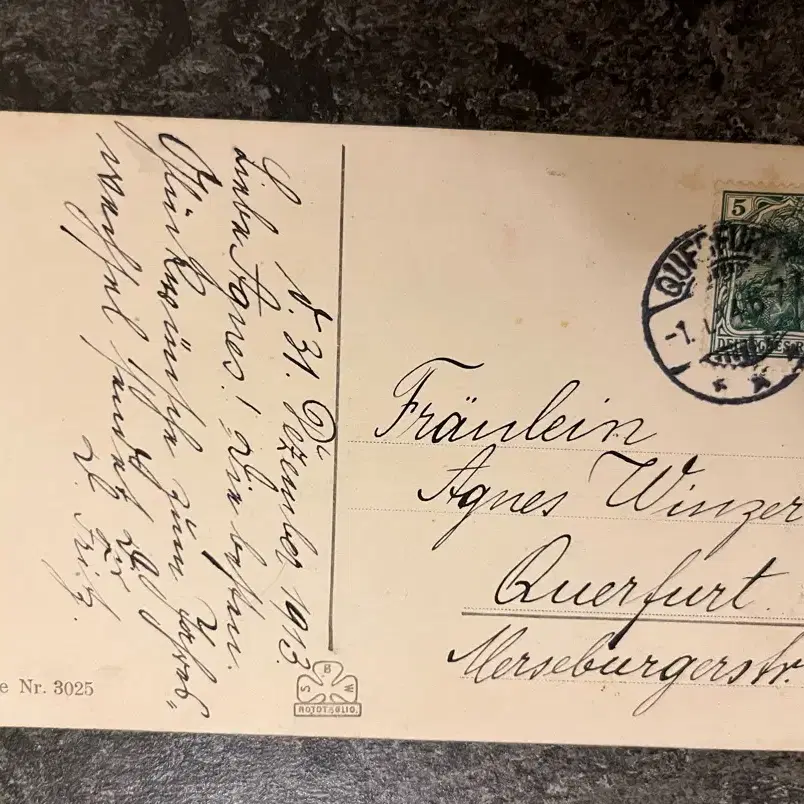 Q. d. 31. Dezember 1913.
Liebe Agnes! Die besten
Glückwünsche zum Jahres-
wechsel sendet Dir
D. Fritz.
e Nr. 3025
S B W
ROTOTAGLIO.
5
DEUTSCHES R
QUERFURT
Fräulein
Agnes Winzer
Querfurt.
Merseburgerstr.